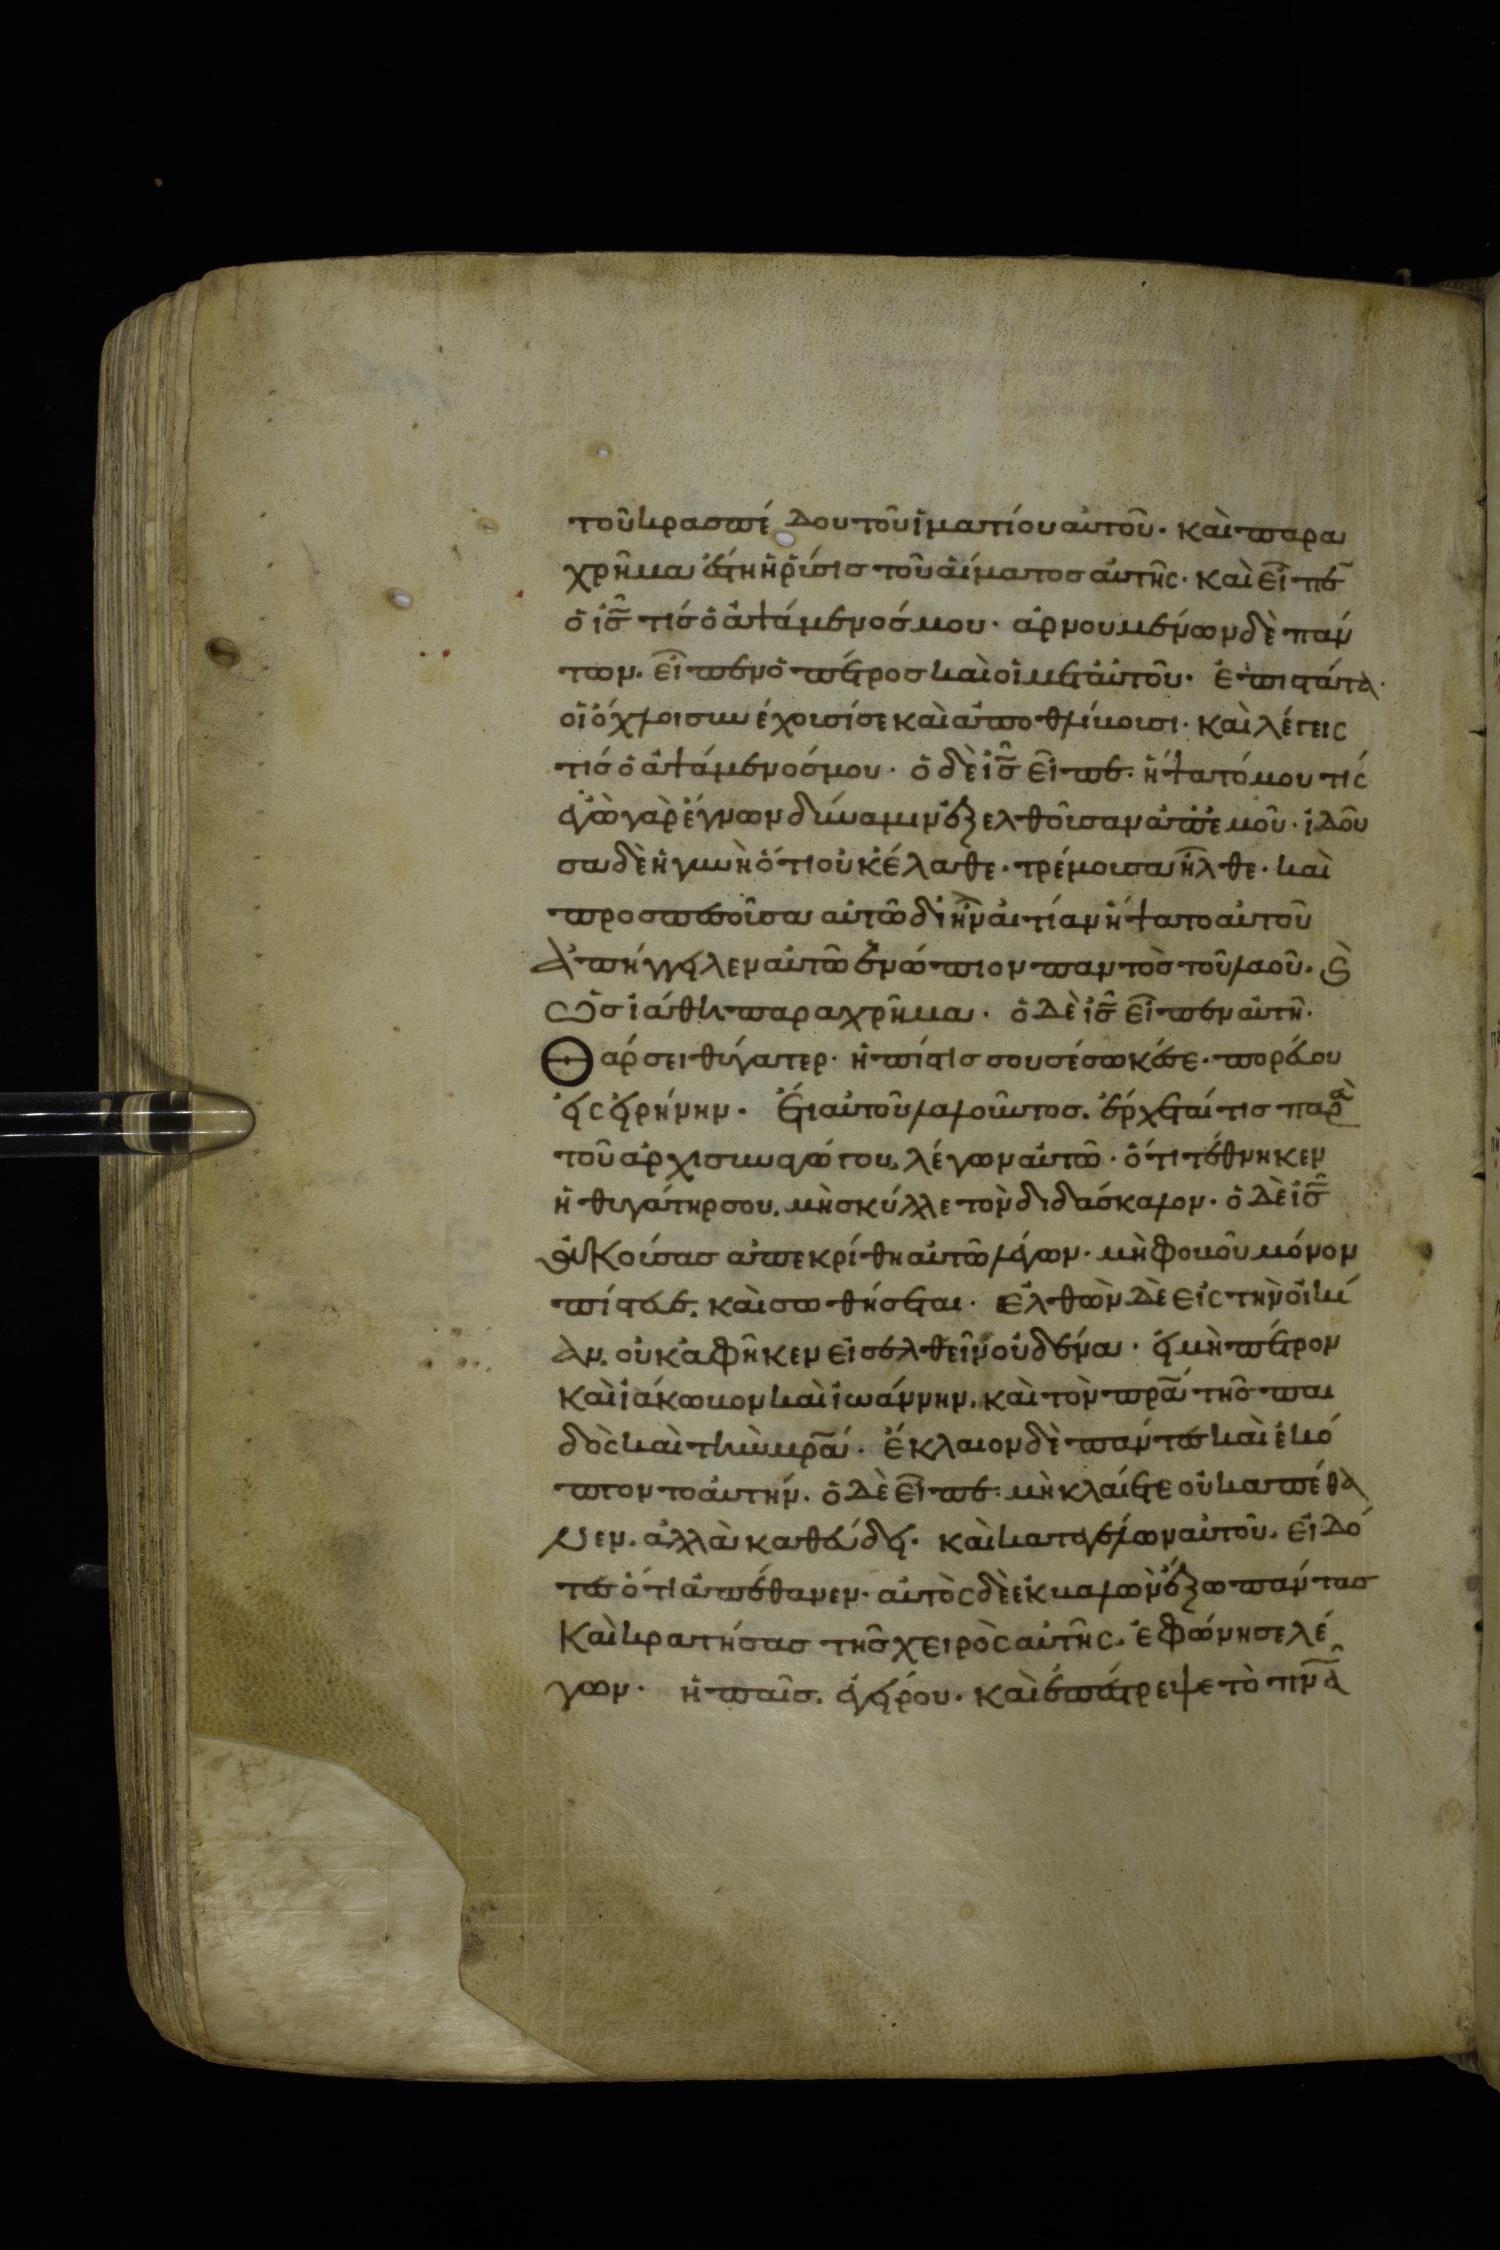 τοῦ κρασπέδου τοῦ ἱματίου αὐτοῦ· καὶ παρα
χρῆμα ἔστη ἡ ῥύσις τοῦ αἵματος αὐτῆς· καὶ εἶπε
ὁ ἰς̅ τίς ὁ ἁψάμενός μου· ἀρνουμένων δὲ πάν
των. εἶπεν ὁ πέτρος καὶ οἱ μετ' αὐτοῦ· ἐπιστάτα·
οἱ ὄχλοι συνέχουσί σε καὶ ἀποθλίβουσι· καὶ λέγεις
τίς ὁ ἁψάμενός μου· ὁ δὲ ἰς̅ εἶπε· ἥψατό μου τίς
ἐγὼ γὰρ ἔγνων δύναμιν ἐξελθοῦσαν ἀπ' ἐμοῦ· ἰδοῦ
σα δὲ ἡ γυνὴ ὅτι οὐκ ἔλαθε· τρέμουσα ἦλθε· καὶ
προσπεσοῦσα αὐτῶ δι' ἣν αἰτίαν ἥψατο αὐτοῦ
ἀπήγγειλεν αὐτῶ ἐνώπιον παντὸς τοῦ λαοῦ· καὶ
ὡς ἰάθη παραχρῆμα· ὁ δὲ ἰς̅ εἶπεν αὐτῆ·
Θάρσει θύγατερ· ἡ πίστις σου σέσωκέ σε· πορεύου
εἰς εἰρήνην· Ἔτι αὐτοῦ λαλοῦντος. ἔρχεταί τις παρὰ
τοῦ ἀρχισυναγώγου, λέγων αὐτῶ· ὅτι τέθνηκεν
ἡ θυγάτηρ σου. μὴ σκύλλε τὸν διδάσκαλον· ὁ δὲ ἰς̅
ἀκούσας ἀπεκρίθη αὐτῶ λέγων· μὴ φοβοῦ μόνον
πίστευε. καὶ σωθήσεται· ἐλθὼν δὲ εἰς τὴν οἰκί
αν. οὐκ ἀφῆκεν εἰσελθεῖν οὐδένα· εἰ μὴ πέτρον
καὶ ἰάκωβον καὶ ἰωάννην. καὶ τὸν πρ̅α τῆς παι
δὸς καὶ τὴν μρ̅α· ἔκλαιον δὲ πάντες καὶ ἐκό
πτοντο αὐτήν. ὁ δὲ εἶπε· μὴ κλαίετε οὐκ ἀπέθα
νεν. ἀλλὰ καθεύδει· καὶ κατεγέλων αὐτοῦ. εἰδό
τες ὅτι ἀπέθανεν· αὐτὸς δὲ ἐκβαλὼν ἔξω πάντας
καὶ κρατήσας τῆς χειρὸς αὐτῆς. ἐφώνησε λέ
γων· ἡ παῖς. ἐγείρου· καὶ ἐπέστρεψε τὸ πν̅α